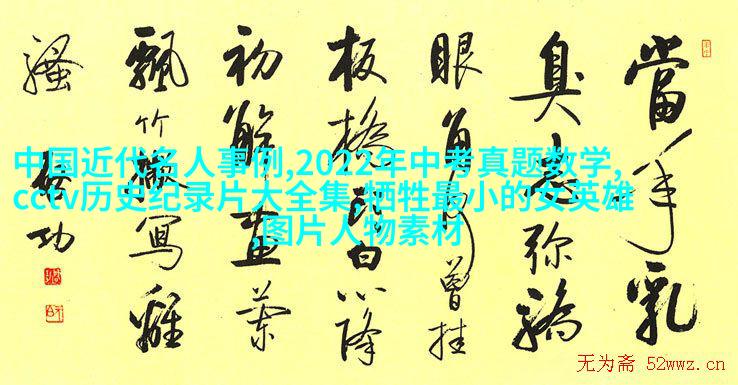 當年乳
臭志弥驕
眼角何曾挂
板橋頭白心降
初解畫蘭
飄竹撇寫離
騷
启功
中国近代名人事例,2022年中考真题数学,
cctv历史纪录片大全集,牺牲最小的女英雄
,图片人物素材
无为斋 52wwz.cn